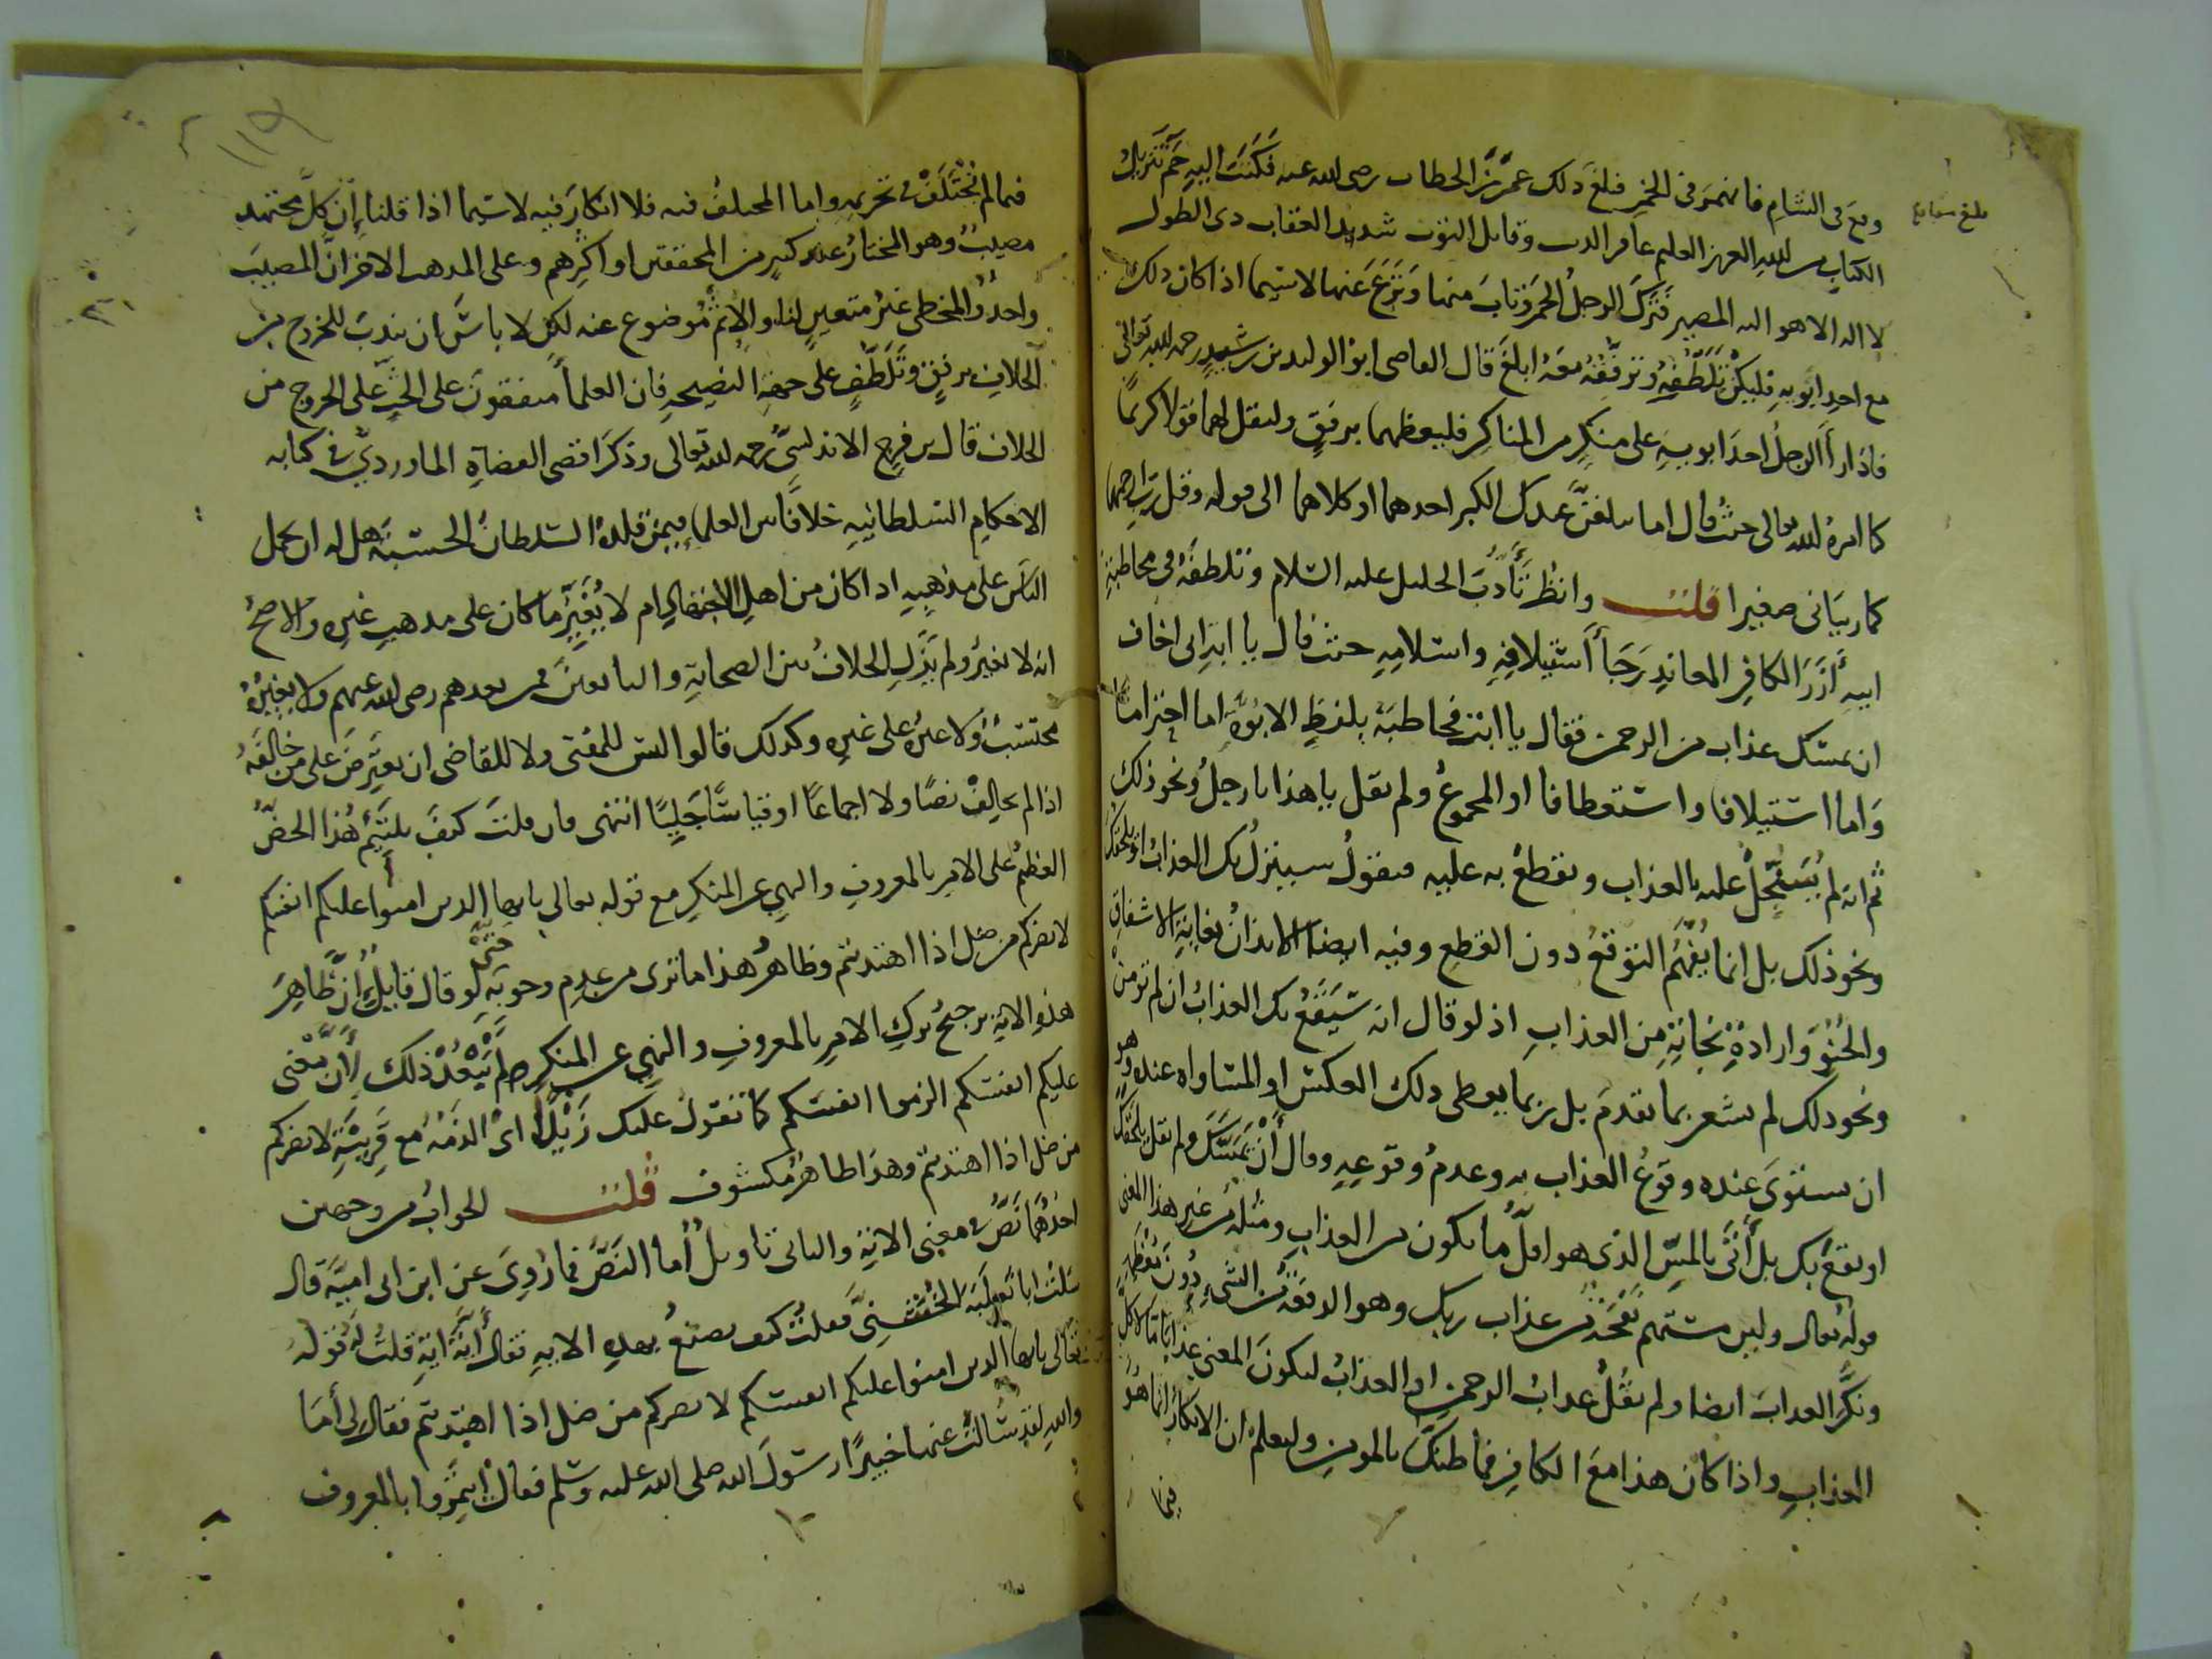 وقع في الشام فانهمر في الخمر فبلغ ذلك عمر بن الخطاب رضي الله عنه فكتب اليه حم تنزيل
الكتاب من الله العزيز العليم غافر الذنب وقابل التوب شديد العقاب ذي الطول
لا اله الا هو اليه المصير فترك الرجل الخمر وتاب منها ونزع عنها لا سيما اذا كان ذلك
مع احد ابويه فليكن تلطفه وترفقه معه ابلغ قال القاضي ابو الوليد بن رشيد رحمه الله تعالى
فاذا رأا الرجل احد ابويه على منكر من المناكر فليعظهما برفق وليقل لهما قولا كريما
كما امره الله تعالى حيث قال اما يبلغن عندك الكبر احدهما او كلاهما الى قوله وقل رب ارحمهما
كما ربياني صغيرا قلت وانظر تأدب الخليل عليه السلام وتلطفه في مخاطبة
ابيه أزر الكافر المعاند رجأ أستيلافه واسلامه حيث قال يا ابت اني اخاف
ان يمسك عذاب من الرحمن فقال يا ابت فخاطبه بلفظ الابوة اما احتراما
واما استيلافا واستعطافا او المجموع ولم يقل يا هذا يا رجل ونحو ذلك
ثم انه لم يسجل عليه بالعذاب ويقطع به عليه فيقول سينزل بك العذاب او يلحقك
ونحو ذلك بل انما يفهم التوقع دون القطع وفيه ايضا الايذان بغاية الاشفاق
والحنو وارادة نجاته من العذاب اذ لو قال انه سيقع بك العذاب ان لم تومن
ونحو ذلك لم يشعر بما تقدم بل ربما يعطى ذلك العكس او المساواه عنده وهو
ان يستوي عنده وقوع العذاب به وعدم وقوعه وقال أن يمسك ولم يقل يلحقك
او يقع بك بل أتى بالمس الذي هو اقل ما يكون من العذاب ومثله من غير هذا المعنى
قوله تعالى ولين مستهم نفحة من عذاب ربك وهو الدفعة من الشيء دون معظمه
ونكر العذاب ايضا ولم يقل عذاب الرحمن او العذاب ليكون المعنى عذابا ما لا كل
العذاب واذا كان هذا مع الكافر فما ظنك بالمومن وليعلم ان الانكار انما هو
فيما
فيما لم يختلف في تحريمه واما المختلف فيه فلا انكار فيه لا سيما اذا قلنا إن كل مجتهد
مصيب وهو المختار عند كثير من المحققين او اكثرهم وعلى المذهب الاخر ان المصيب
واحد والمخطي غير متعين لنا والاثم موضوع عنه لكن لا باس ان يندب للخروج من
الخلاف برفق وتلطف على جهة النصيحة فان العلماً متفقون على الحث على الخروج من
الخلاف قال بن فرح الاندلسي رحمه الله تعالى وذكر اقضى القضاة الماوردي في كتابه
الاحكام السلطانيه خلافا بين العلما فيمن قلده السلطان الحسبة هل له ان يحمل
الناس على مذهبه اذا كان من اهل الاجتهاد ام لا يغير ما كان على مذهب غيره والاصح
انه لا يغير ولم يزل الخلاف بين الصحابة والتابعين فمن بعدهم رضي الله عنهم ولا يغيره
محتسب ولا غيره على غيره وكذلك قالوا ليس للمفتى ولا للقاضي ان يعترض على من خالفه
اذا لم يخالف نصا ولا اجماعا او قياسا جليا انتهى فان قلت كيف يلتئم هذا الحض
العظيم على الامر بالمعروف والنهي عن المنكر مع قوله تعالى يا ايها الذين امنوا عليكم انفسكم
لا يضركم من ضل اذا اهتديتم وظاهر هذا ما ترى من عدم وجوبه حتى لو قال قايل ان ظاهر
هذه الاية يرجح ترك الامر بالمعروف والنهي عن المنكر لم يبعد ذلك لأن معنى
عليكم انفسكم الزموا انفسكم كما تقول عليك زيدا اي الزمه مع قرينة لا يضركم
من ضل اذا اهتديتم وهذا ظاهر مكشوف قلت الجواب من وجهين
احدهما نص في معنى الاية والثاني تاويل أما النص فما روي عن ابن ابي امية قال
سالت ابا ثعلبة الخشني فقلت كيف تصنع بهذه الاية فقال أية اية قلت له قوله
تعالى يا ايها الذين امنوا عليكم انفسكم لا يضركم من ضل اذا اهتديتم فقال لي أما
والله لقد سألت عنها خبيرا رسول الله صلى الله عليه وسلم فقال ايتمروا بالمعروف